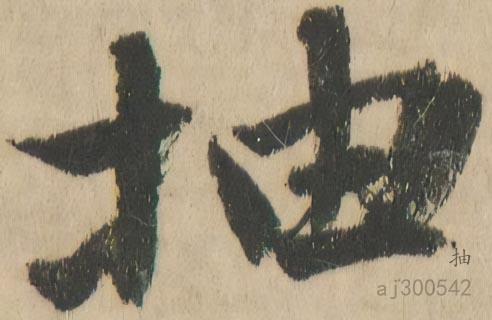 抽
抽
aj300542